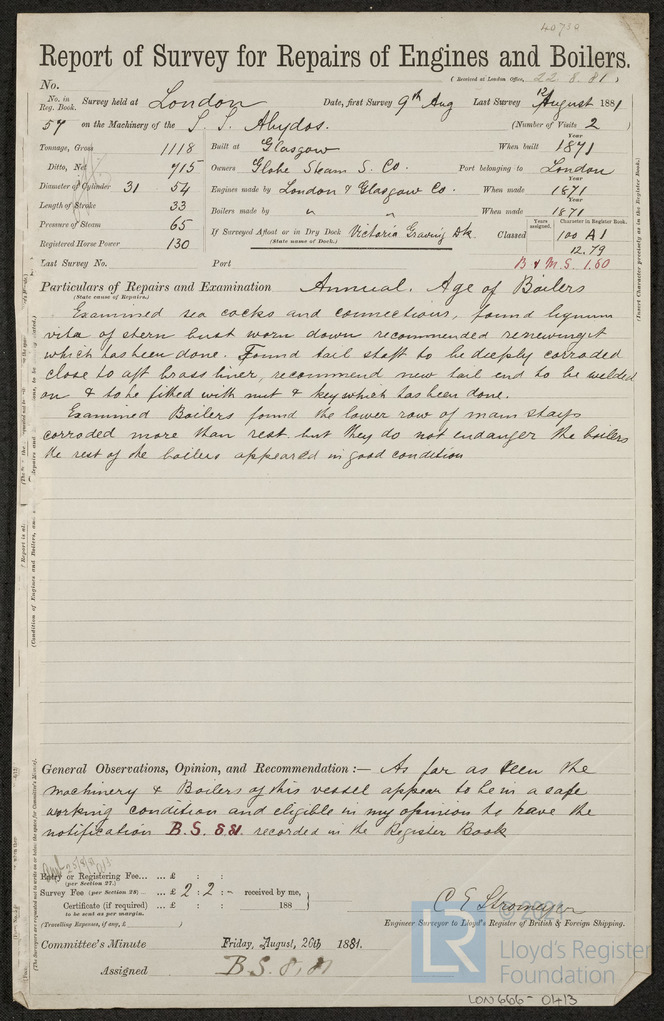 40739
Report of Survey for Repairs of Engines and Boilers.
(Received at London Office, 22.8.81)
No.
No. in Reg. Book. Survey held at London Date, first Survey 9th Aug Last Survey 12 August 1881
57 on the Machinery of the S.S. Abydos. (Number of Visits 2)
Tonnage, Gross 1118
Ditto, Net 715
Diameter of Cylinder 31 54
Length of Stroke 33
Pressure of Steam 65
Registered Horse Power 130
Built at Glasgow When built Year 1871
Owners Globe Steam S. Co. Port belonging to London
Engines made by London & Glasgow Co. When made Year 1871
Boilers made by " " When made Year 1871
If Surveyed Afloat or in Dry Dock Victoria Graving Dk.
(State name of Dock.)
Classed Years assigned. Character in Register Book.
100 A1
12.79
Last Survey No. Port B & M.S. 1.80
Particulars of Repairs and Examination Annual. Age of Boilers
(State cause of Repairs.)
Examined sea cocks and connections, found lignum
vita of stern bust worn down recommended renewing it
which has been done. Found tail shaft to be deeply corroded
close to aft brass liner, recommend new tail end to be welded
on & to be fitted with nut & key which has been done.
Examined Boilers found the lower row of main stays
corroded more than rest. but they do not endanger the boilers
the rest of the boilers appeared in good condition
General Observations, Opinion, and Recommendation :— As far as seen the
machinery & Boilers of this vessel appear to be in a safe
working condition and eligible in my opinion to have the
notification B.S. 8.81. recorded in the Register Book
Entry or Registering Fee... ... £ : :
(per Section 27.)
Survey Fee (per Section 28) ... ... £ 2 : 2 : - received by me,
Certificate (if required) ... £ : : 188
to be sent as per margin.
(Travelling Expenses, if any, £ )
C E Stromeyer
Engineer Surveyor to Lloyd's Register of British & Foreign Shipping.
Committee's Minute Friday, August, 26th 1881.
Assigned B.S. 8,81
(Insert Character precisely as in the Register Book.)
LR
© 2021
Lloyd's Register
Foundation
LON666-0413